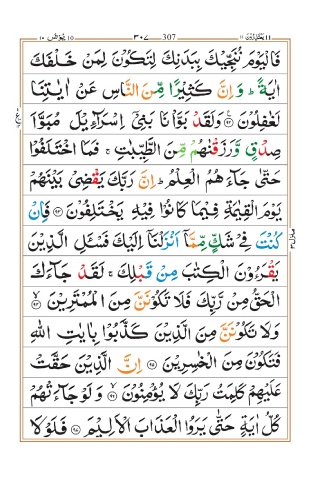 ١٠ يونس ١٠ ٣٠٧ 307 يعتذرون ١١
فَالۡيَوۡمَ نُنَجِّيۡكَ بِبَدَنِكَ لِتَكُوۡنَ لِمَنۡ خَلۡفَكَ
اٰيَةً ؕ وَاِنَّ كَثِيۡرًا مِّنَ النَّاسِ عَنۡ اٰيٰتِنَا
لَغٰفِلُوۡنَ ﴿٩٢﴾ وَلَقَدۡ بَوَّاۡنَا بَنِىۡۤ اِسۡرَآءِيۡلَ مُبَوَّاَ
صِدۡقٍ وَّرَزَقۡنٰهُمۡ مِّنَ الطَّيِّبٰتِۚ فَمَا اخۡتَلَفُوۡا
حَتّٰى جَآءَهُمُ الۡعِلۡمُ ؕ اِنَّ رَبَّكَ يَقۡضِىۡ بَيۡنَهُمۡ
يَوۡمَ الۡقِيٰمَةِ فِيۡمَا كَانُوۡا فِيۡهِ يَخۡتَلِفُوۡنَ ﴿٩٣﴾ فَاِنۡ
كُنۡتَ فِىۡ شَكٍّ مِّمَّاۤ اَنۡزَلۡنَاۤ اِلَيۡكَ فَسۡـَٔلِ الَّذِيۡنَ
يَقۡرَءُوۡنَ الۡكِتٰبَ مِنۡ قَبۡلِكَ ۚ لَقَدۡ جَآءَكَ
الۡحَقُّ مِنۡ رَّبِّكَ فَلَا تَكُوۡنَنَّ مِنَ الۡمُمۡتَرِيۡنَۙ ﴿٩٤﴾
وَلَا تَكُوۡنَنَّ مِنَ الَّذِيۡنَ كَذَّبُوۡا بِاٰيٰتِ اللّٰهِ
فَتَكُوۡنَ مِنَ الۡخٰسِرِيۡنَ ﴿٩٥﴾ اِنَّ الَّذِيۡنَ حَقَّتۡ
عَلَيۡهِمۡ كَلِمَتُ رَبِّكَ لَا يُؤۡمِنُوۡنَۙ ﴿٩٦﴾ وَلَوۡ جَآءَتۡهُمۡ
كُلُّ اٰيَةٍ حَتّٰى يَرَوُا الۡعَذَابَ الۡاَ لِيۡمَ ﴿٩٧﴾ فَلَوۡلَا